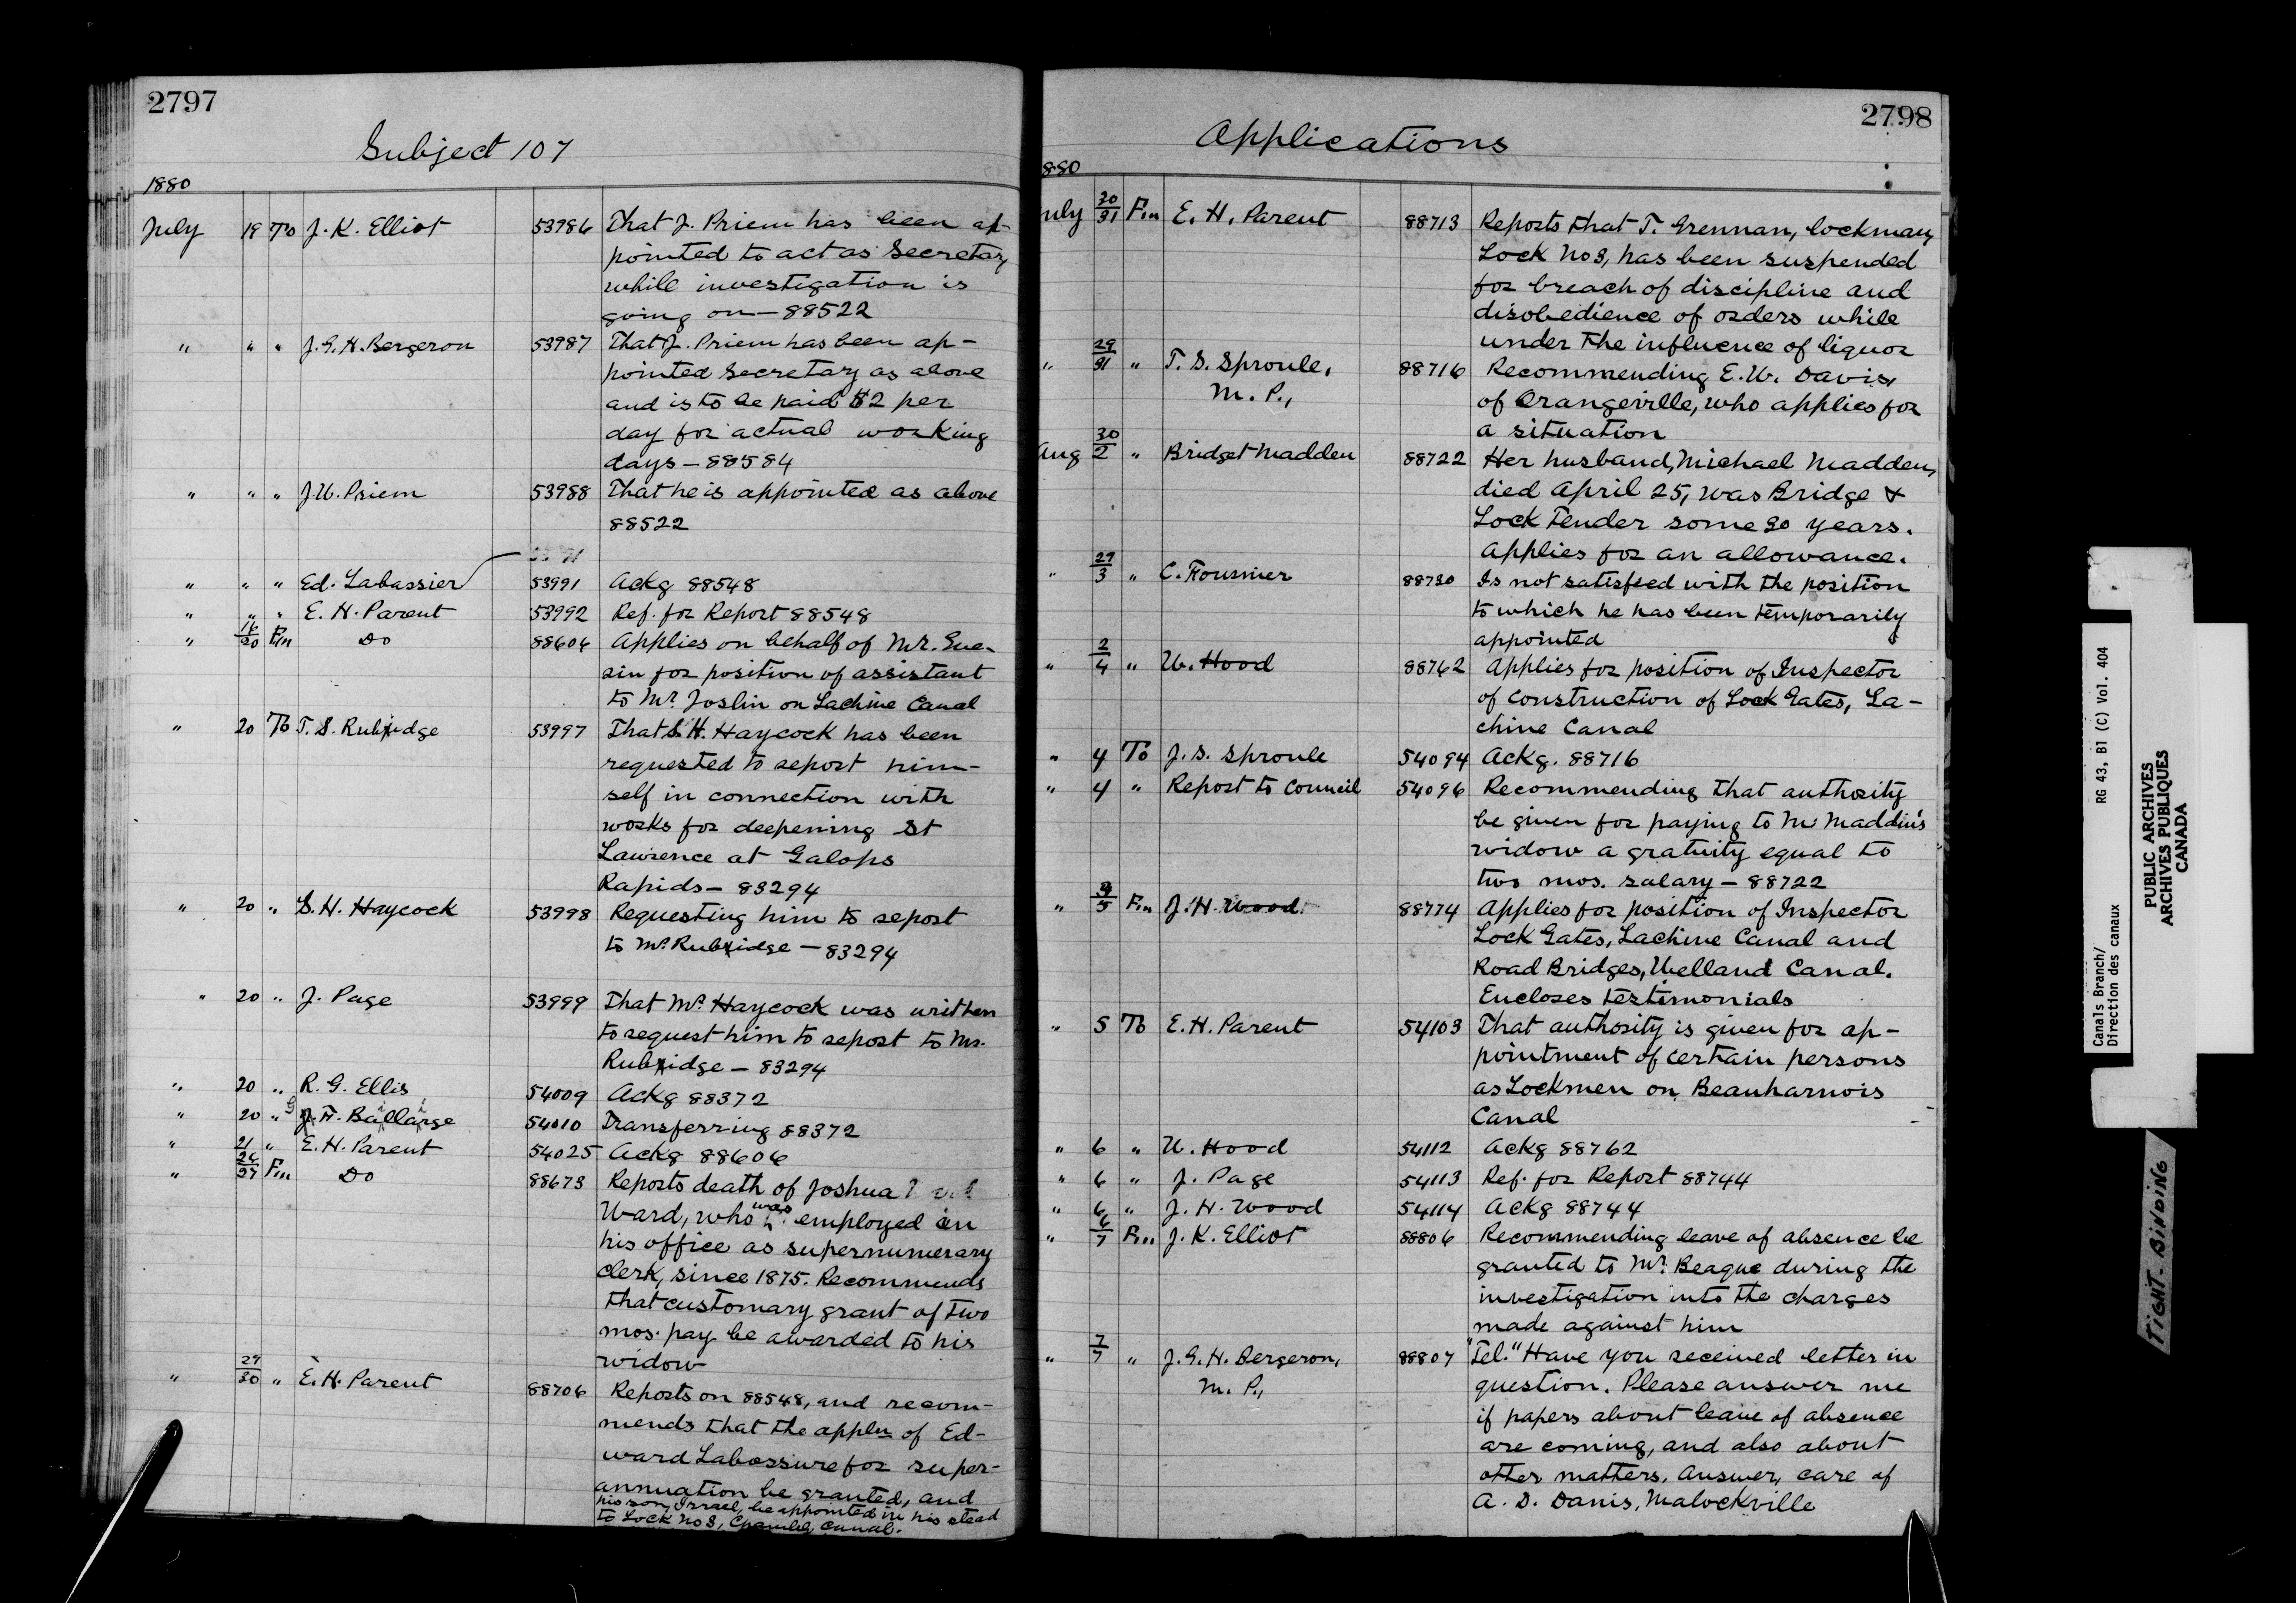 2797
Subject 107
1880
July 19 To J. K. Elliot 53986 That J. Priem has been ap-
pointed to act as Secretary
while investigation is
going on — 88522
" " " J. G. H. Bergeron 53987 That J. Priem has been ap-
pointed Secretary as above
and is to be paid $2 per
day for actual working
days — 88584
" " " J. W. Priem 53988 That he is appointed as above
88522
" " " Ed. Labassier 53991 Ackg 88548
" " " E. H. Parent 53992 Ref. for Report 88548
" 16/20 Fm Do 88606 Applies on behalf of Mr. Gue-
rin for position of assistant
to Mr. Joslin on Lachine Canal
" 20 To T. S. Rubridge 53997 That S. H. Haycock has been
requested to report him-
self in connection with
works for deepening St
Lawrence at Galops
Rapids — 83294
" 20 " S. H. Haycock 53998 Requesting him to report
to Mr. Rubridge — 83294
" 20 " J. Page 53999 That Mr. Haycock was written
to request him to report to Mr.
Rubridge — 83294
" 20 " R. G. Ellis 54009 Ackg 88372
" 20 " Ballarge 54010 Transferring 88372
" 21 " E. H. Parent 54025 Ackg 88606
" 26/27 Fm Do 88673 Reports death of Joshua
Ward, who was employed in
his office as supernumerary
clerk, since 1875. Recommends
that customary grant of two
mos. pay be awarded to his
widow
" 29/30 " E. H. Parent 88706 Reports on 88548, and recom-
mends that the appln of Ed-
ward Labossure for super-
annuation be granted, and
his son, Israel, be appointed in his stead
to Lock No 8, Chambly Canal.
2798
Applications
880
July 30/31 Fm E. H. Parent 88713 Reports that T. Grennan, lockman,
Lock No 8, has been suspended
for breach of discipline and
disobedience of orders while
under the influence of liquor
" 29/31 " T. S. Sproule, 88716 Recommending E. W. Davis,
M. P., of Orangeville, who applies for
a situation
Aug 30/2 " Bridget Madden 88722 Her husband, Michael Madden,
died April 25, was Bridge &
Lock Tender some 20 years.
Applies for an allowance.
" 29/3 " C. Fournier 88730 Is not satisfied with the position
to which he has been temporarily
appointed
" 2/4 " W. Hood 88762 Applies for position of Inspector
of construction of Lock Gates, La-
chine Canal
" 4 To J. S. Sproule 54094 Ackg. 88716
" 4 " Report to Council 54096 Recommending that authority
be given for paying to M. Maddin's
widow a gratuity equal to
two mos. salary — 88722
" 3/5 Fm J. H. Wood 88774 Applies for position of Inspector
Lock Gates, Lachine Canal and
Road Bridges, Welland Canal.
Encloses testimonials
" 5 To E. H. Parent 54103 That authority is given for ap-
pointment of certain persons
as Lockmen on Beauharnois
Canal
" 6 " W. Hood 54112 Ackg 88762
" 6 " J. Page 54113 Ref. for Report 88744
" 6 " J. H. Wood 54114 Ackg 88744
" 6/7 Fm J. K. Elliot 88806 Recommending leave of absence be
granted to Mr. Beague during the
investigation into the charges
made against him
" 7/7 " J. G. H. Bergeron, 88807 "Tel." Have you received letter in
M. P., question. Please answer me
if papers about leave of absence
are coming, and also about
other matters. Answer, care of
A. D. Danis, Malockville
Canals Branch/ RG 43, B1 (C) Vol. 404
Direction des canaux
PUBLIC ARCHIVES
ARCHIVES PUBLIQUES
CANADA
TIGHT BINDING